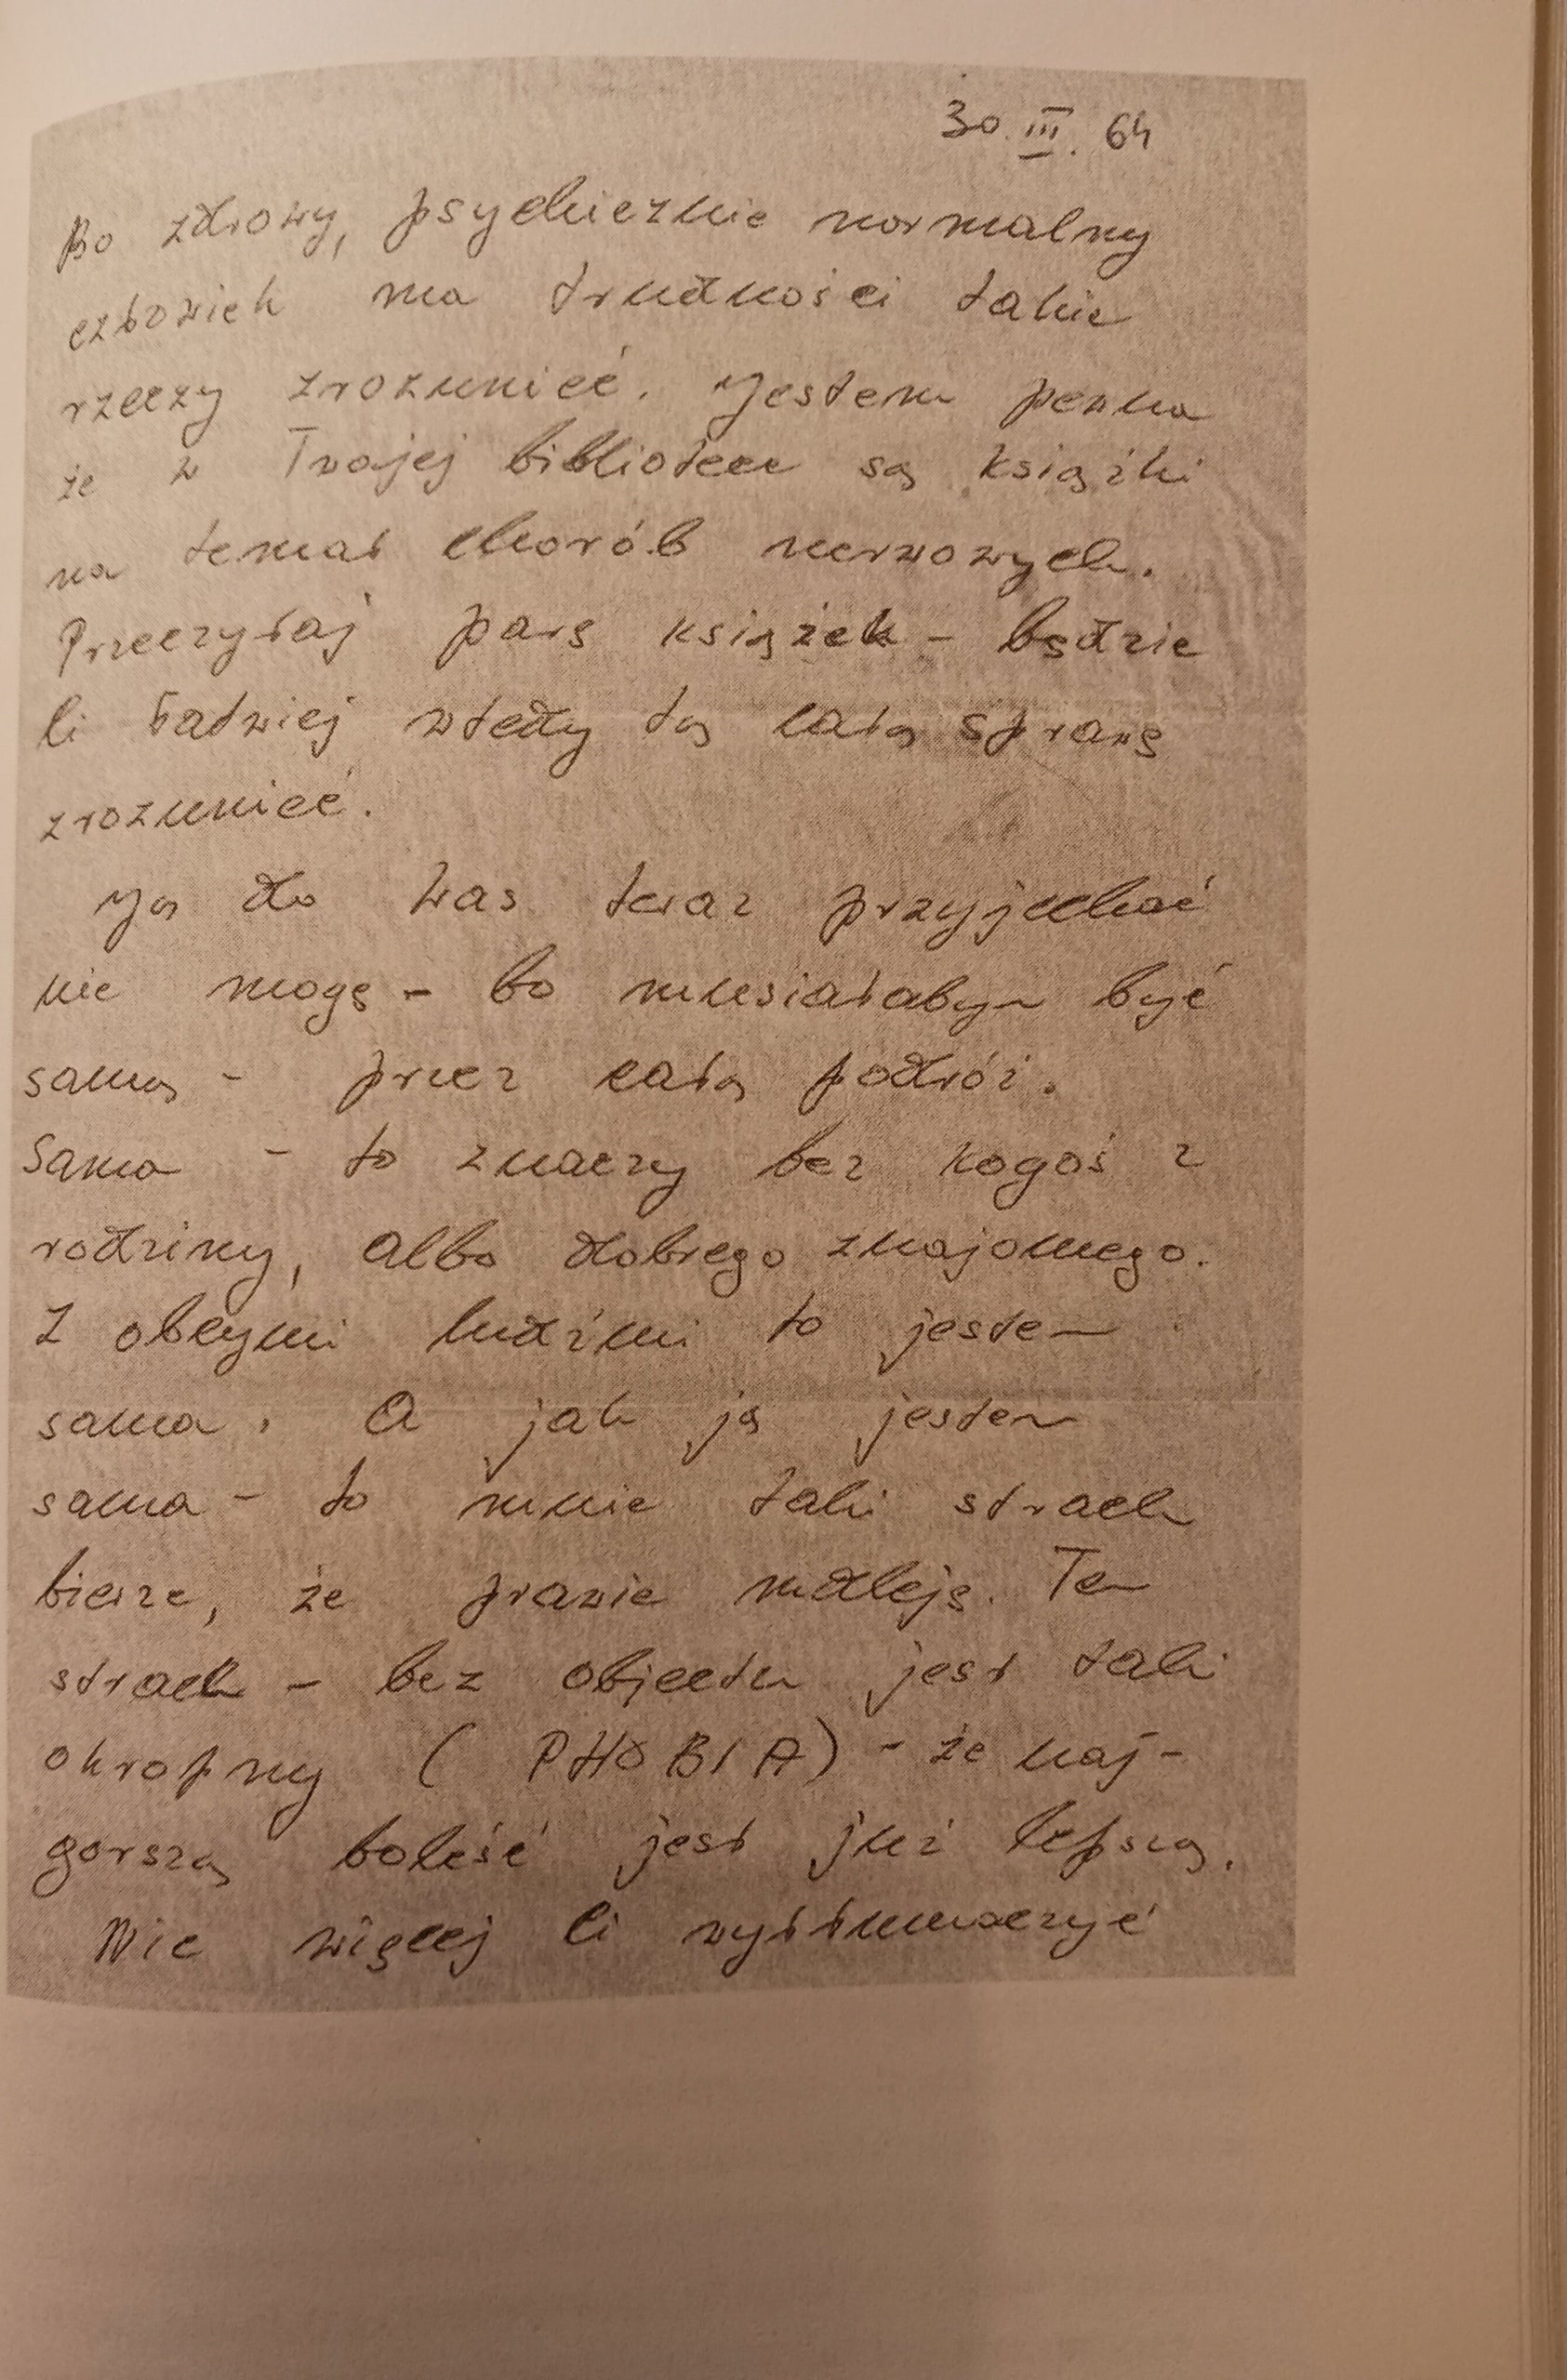 30.III.64
Bo zdrowy, psychicznie normalny
człowiek ma trudności takie
rzeczy zrozumieć. Jestem pewna
że w Twojej bibliotece są książki
na temat chorób nerwowych.
Przeczytaj parę książek – będzie
Ci łatwiej wtedy tą całą sprawę
zrozumieć.
Ja do Was teraz przyjechać
nie mogę – bo musiałabym być
samą – przez całą podróż.
Sama – to znaczy bez kogoś z
rodziny, albo dobrego znajomego.
Z obcymi ludźmi to jestem
sama. A jak ja jestem
sama – to mnie taki strach
bierze, że prawie mdleję. Ten
strach – bez objectu jest taki
okropny (PHOBIA) – że naj-
gorszą boleść jest już lepszą.
Nic więcej Ci wytłumaczyć